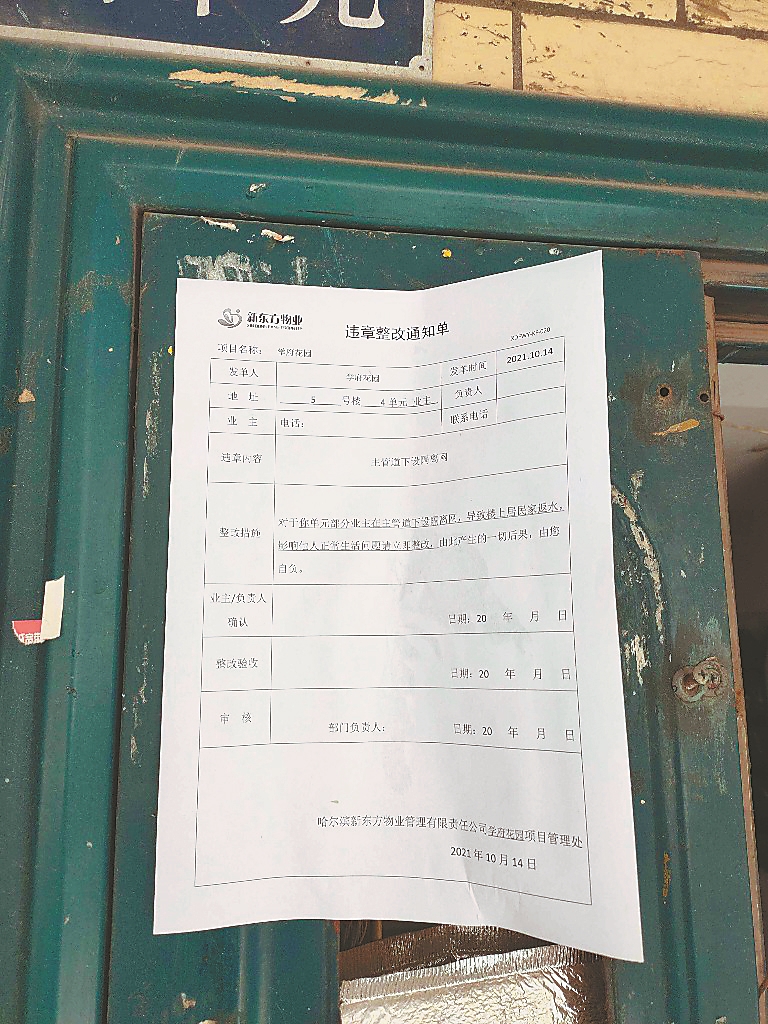 单元
新东方物业
违章整改通知单
项目名称： 学府花园
发单人 学府花园 发单时间 2021.10.14
地 址 5 号楼 4 单元 业主 负责人
业 主 电话： 联系电话
违章内容 主管道下设隔离网
整改措施 对于你单元部分业主在主管道下设隔离网，导致楼上居民家返水，
影响他人正常生活问题请立即整改，由此产生的一切后果，由您
自负。
业主/负责人
确认 日期：20 年 月 日
整改验收 日期：20 年 月 日
审 核 部门负责人： 日期：20 年 月 日
哈尔滨新东方物业管理有限责任公司学府花园项目管理处
2021年10月14日